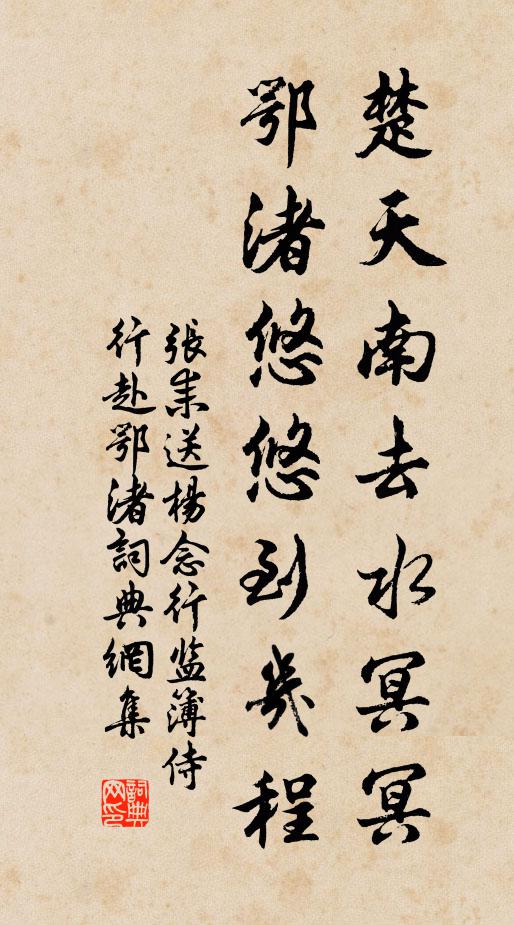 楚天南去水冥冥
鄂渚悠悠到幾程
張耒送楊念行監簿侍
行赴鄂渚詞典網集
詞典
网